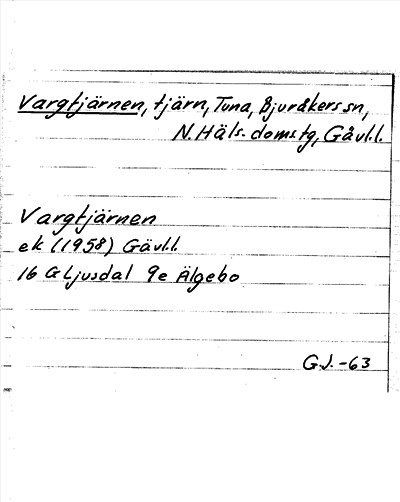 Vargtjärnen, tjärn, Tuna, Bjuråkers sn,
N. Häls. doms tg, Gävl.l.
Vargtjärnen
ek (1958) Gävl.l.
16 G Ljusdal 9e Älgebo
G.J. -63